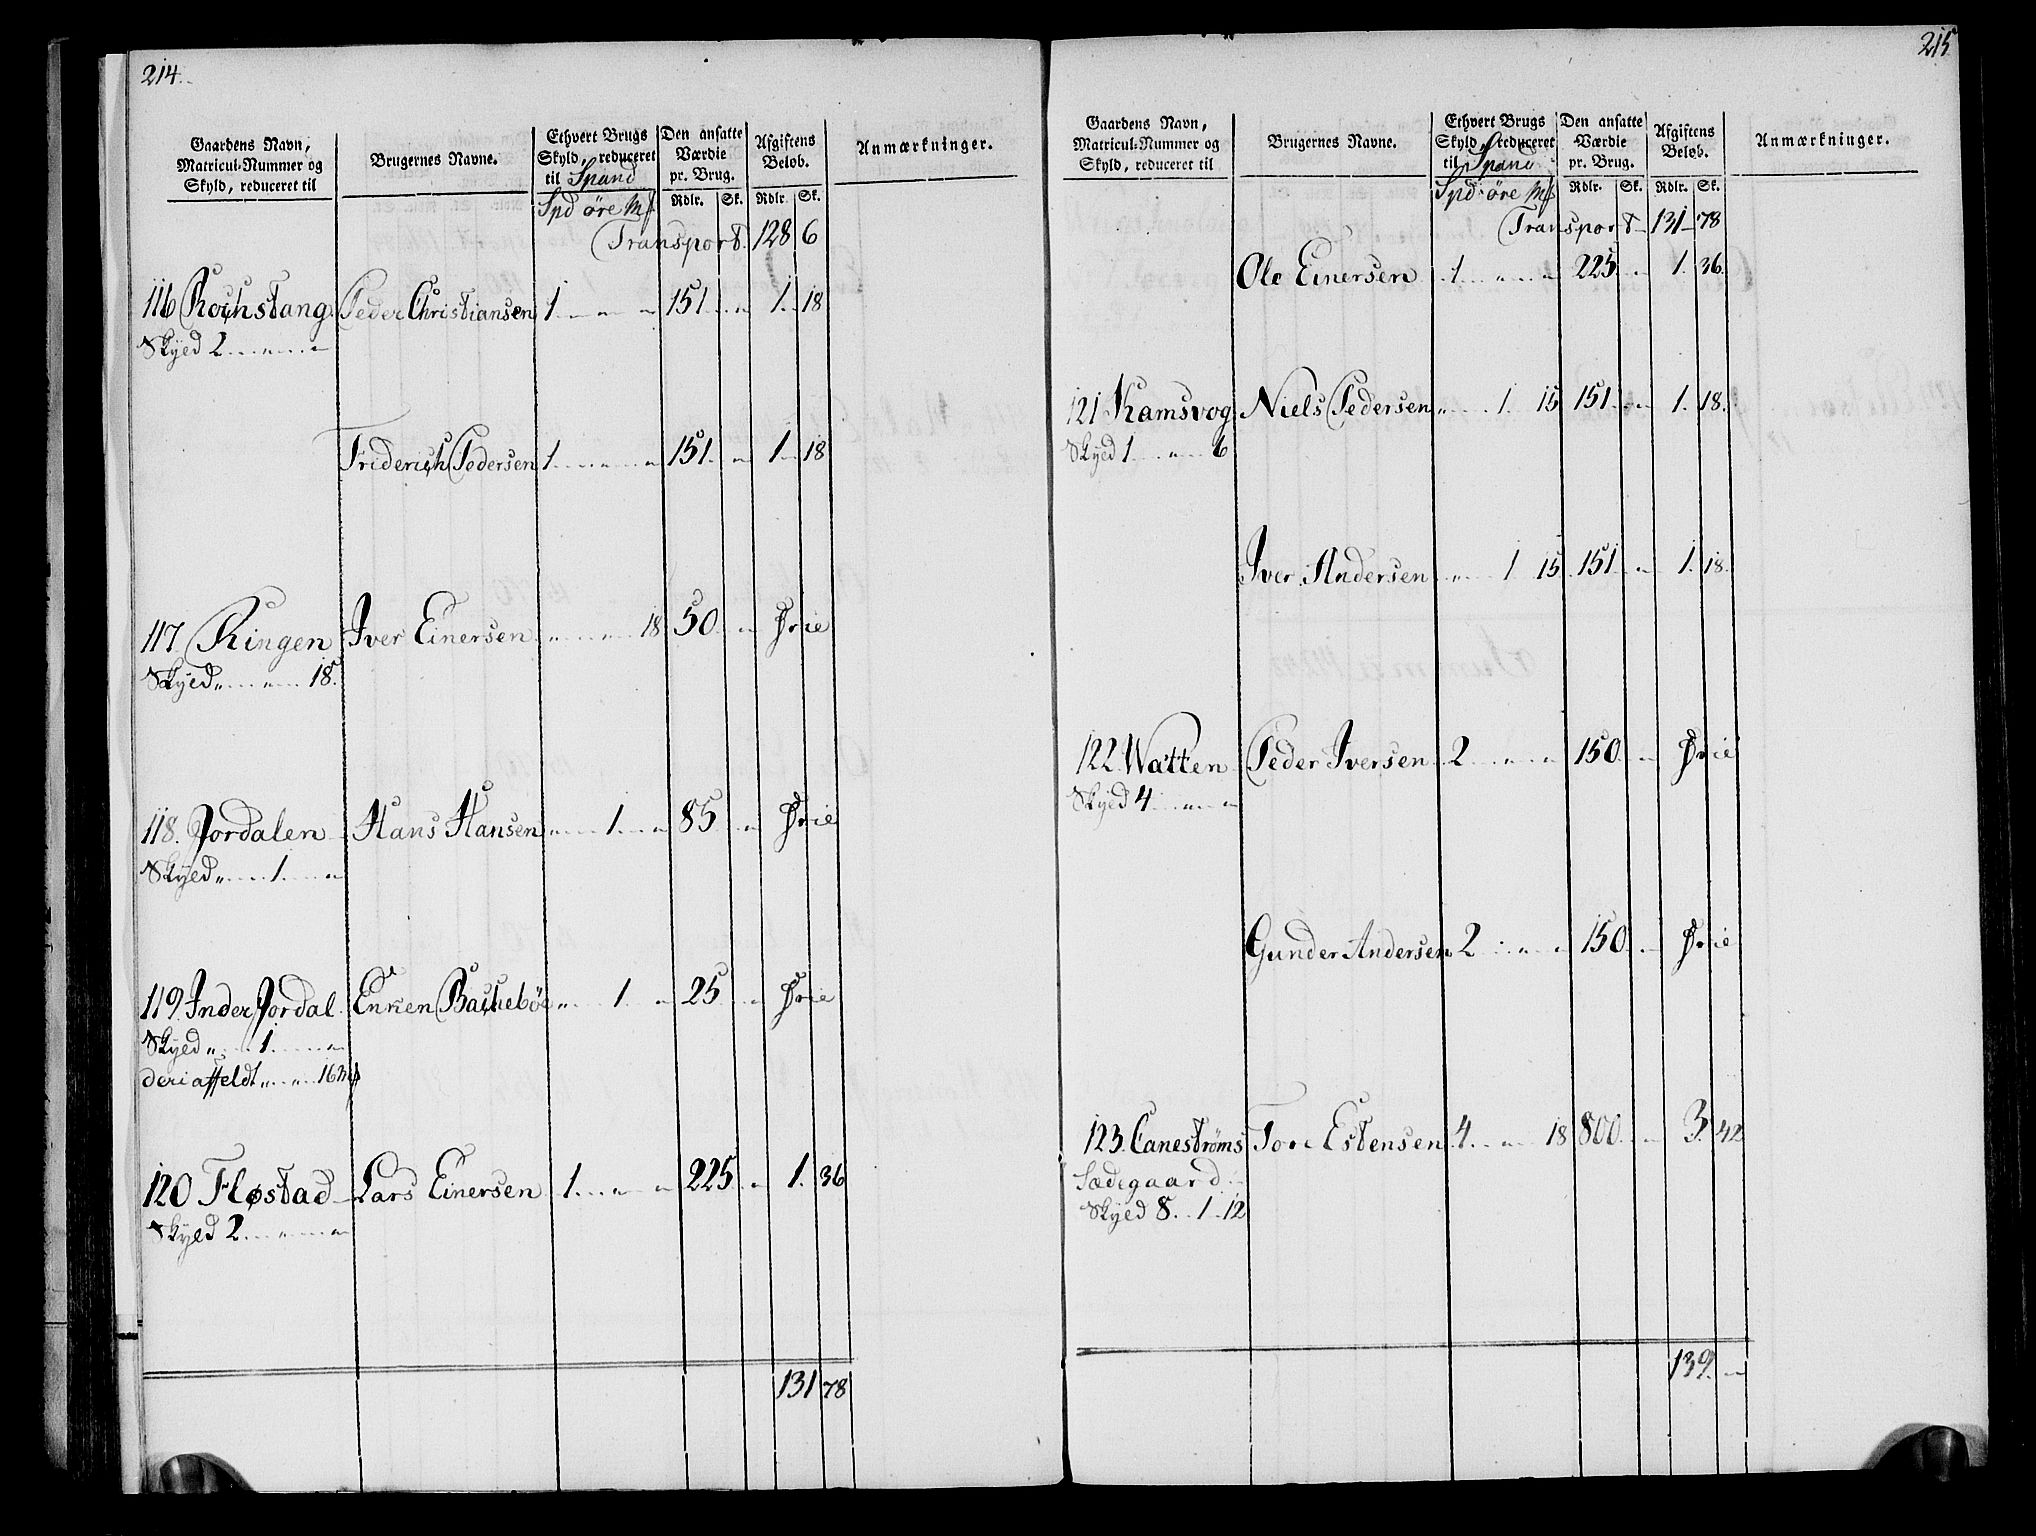 214.
Gaardens Navn, Matricul-Nummer og Skyld, reduceret til
Brugernes Navne.
Ethvert Brugs Skyld, reduceret til Spand
Den ansatte Værdie pr. Brug.
Afgiftens Beløb.
Anmærkninger.
Spd øre Mk Rdlr. Sk. Rdlr. Sk.
Transport. 128 6
116 Rochstang Peder Christiansen 1 " " 151 " 1 18
Skyed 2 " "
Friderich Pedersen 1 " " 151 " 1 18
117 Ringen Iver Einersen " " 18 50 " Frie
Skyed " " 18
118. Jordalen Hans Hansen " 1 " 85 " Frie
Skyed " 1 "
119 Inder Jordal Enken Bachebøe " 1 " 25 " Frie
Skyed " 1 "
deri affeldt " " 16 mk
120 Fløstad Lars Einersen 1 " " 225 " 1 36
Skyed 2 " "
131 78
215
Gaardens Navn, Matricul-Nummer og Skyld, reduceret til
Brugernes Navne.
Ethvert Brugs Skyld, reduceret til Spand
Den ansatte Værdie pr. Brug.
Afgiftens Beløb.
Anmærkninger.
Spd øre Mk Rdlr. Sk. Rdlr. Sk.
Transport 131 78
Ole Einersen 1 " " 225 " 1 36
121 Ramsvog Niels Pedersen " 1 15 151 " 1 18
Skyed 1 " 6
Iver Andersen " 1 15 151 " 1 18
122 Watten Peder Iversen 2 " " 150 " Frie
Skyed 4 " "
Gunder Andersen 2 " " 150 " Frie
123 Canestrøms Tore Estensen 4 " 18 800 " 3 42
Sædegaard
Skyed 8 1 12
139 "